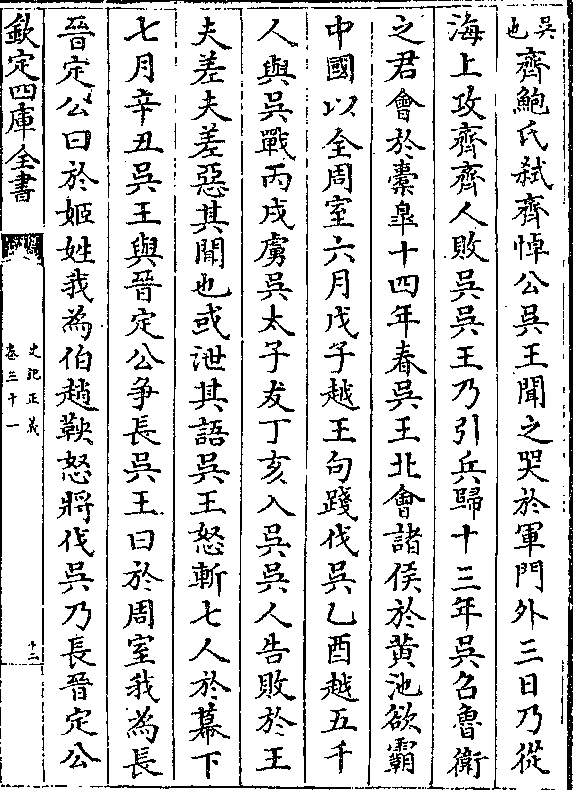 吳也齊鮑氏弑齊悼公吳王聞之哭於軍門外三日乃從
海上攻齊齊人敗吳吳王乃引兵歸十三年吳召魯衛
之君會於橐臯十四年春吳王北會諸侯於黄池欲霸
中國以全周室六月戊子越王句踐伐吳乙酉越五千
人與吳戰丙戌虜吳太子友丁亥入吳吳人告敗於王
夫差夫差惡其聞也或泄其語吳王怒斬七人於幕下
七月辛丑吳王與晉定公争長吳王曰於周室我為長
晉定公曰於姬姓我為伯趙鞅怒將伐吳乃長晉定公
欽定四庫全書
史記正義
卷三十一
十二